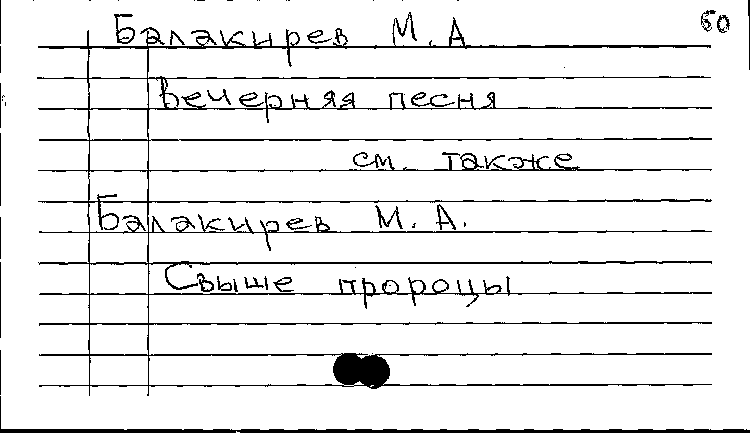 60
Балакирев М. А
Вечерняя песня
см. также
Балакирев М. А.
Свыше пророцы